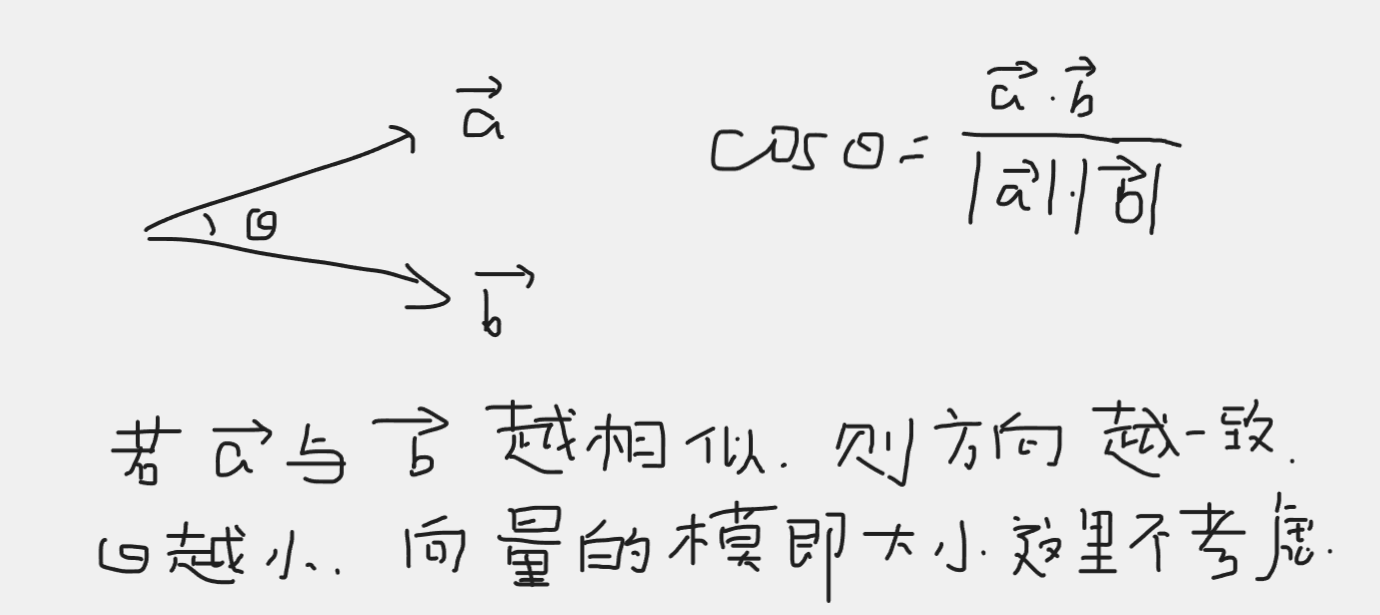 a⃗
θ
b⃗
cosθ = a⃗·b⃗ / |a⃗|·|b⃗|
若 a⃗ 与 b⃗ 越相似. 则方向越一致.
θ越小. 向量的模即大小. 这里不考虑.